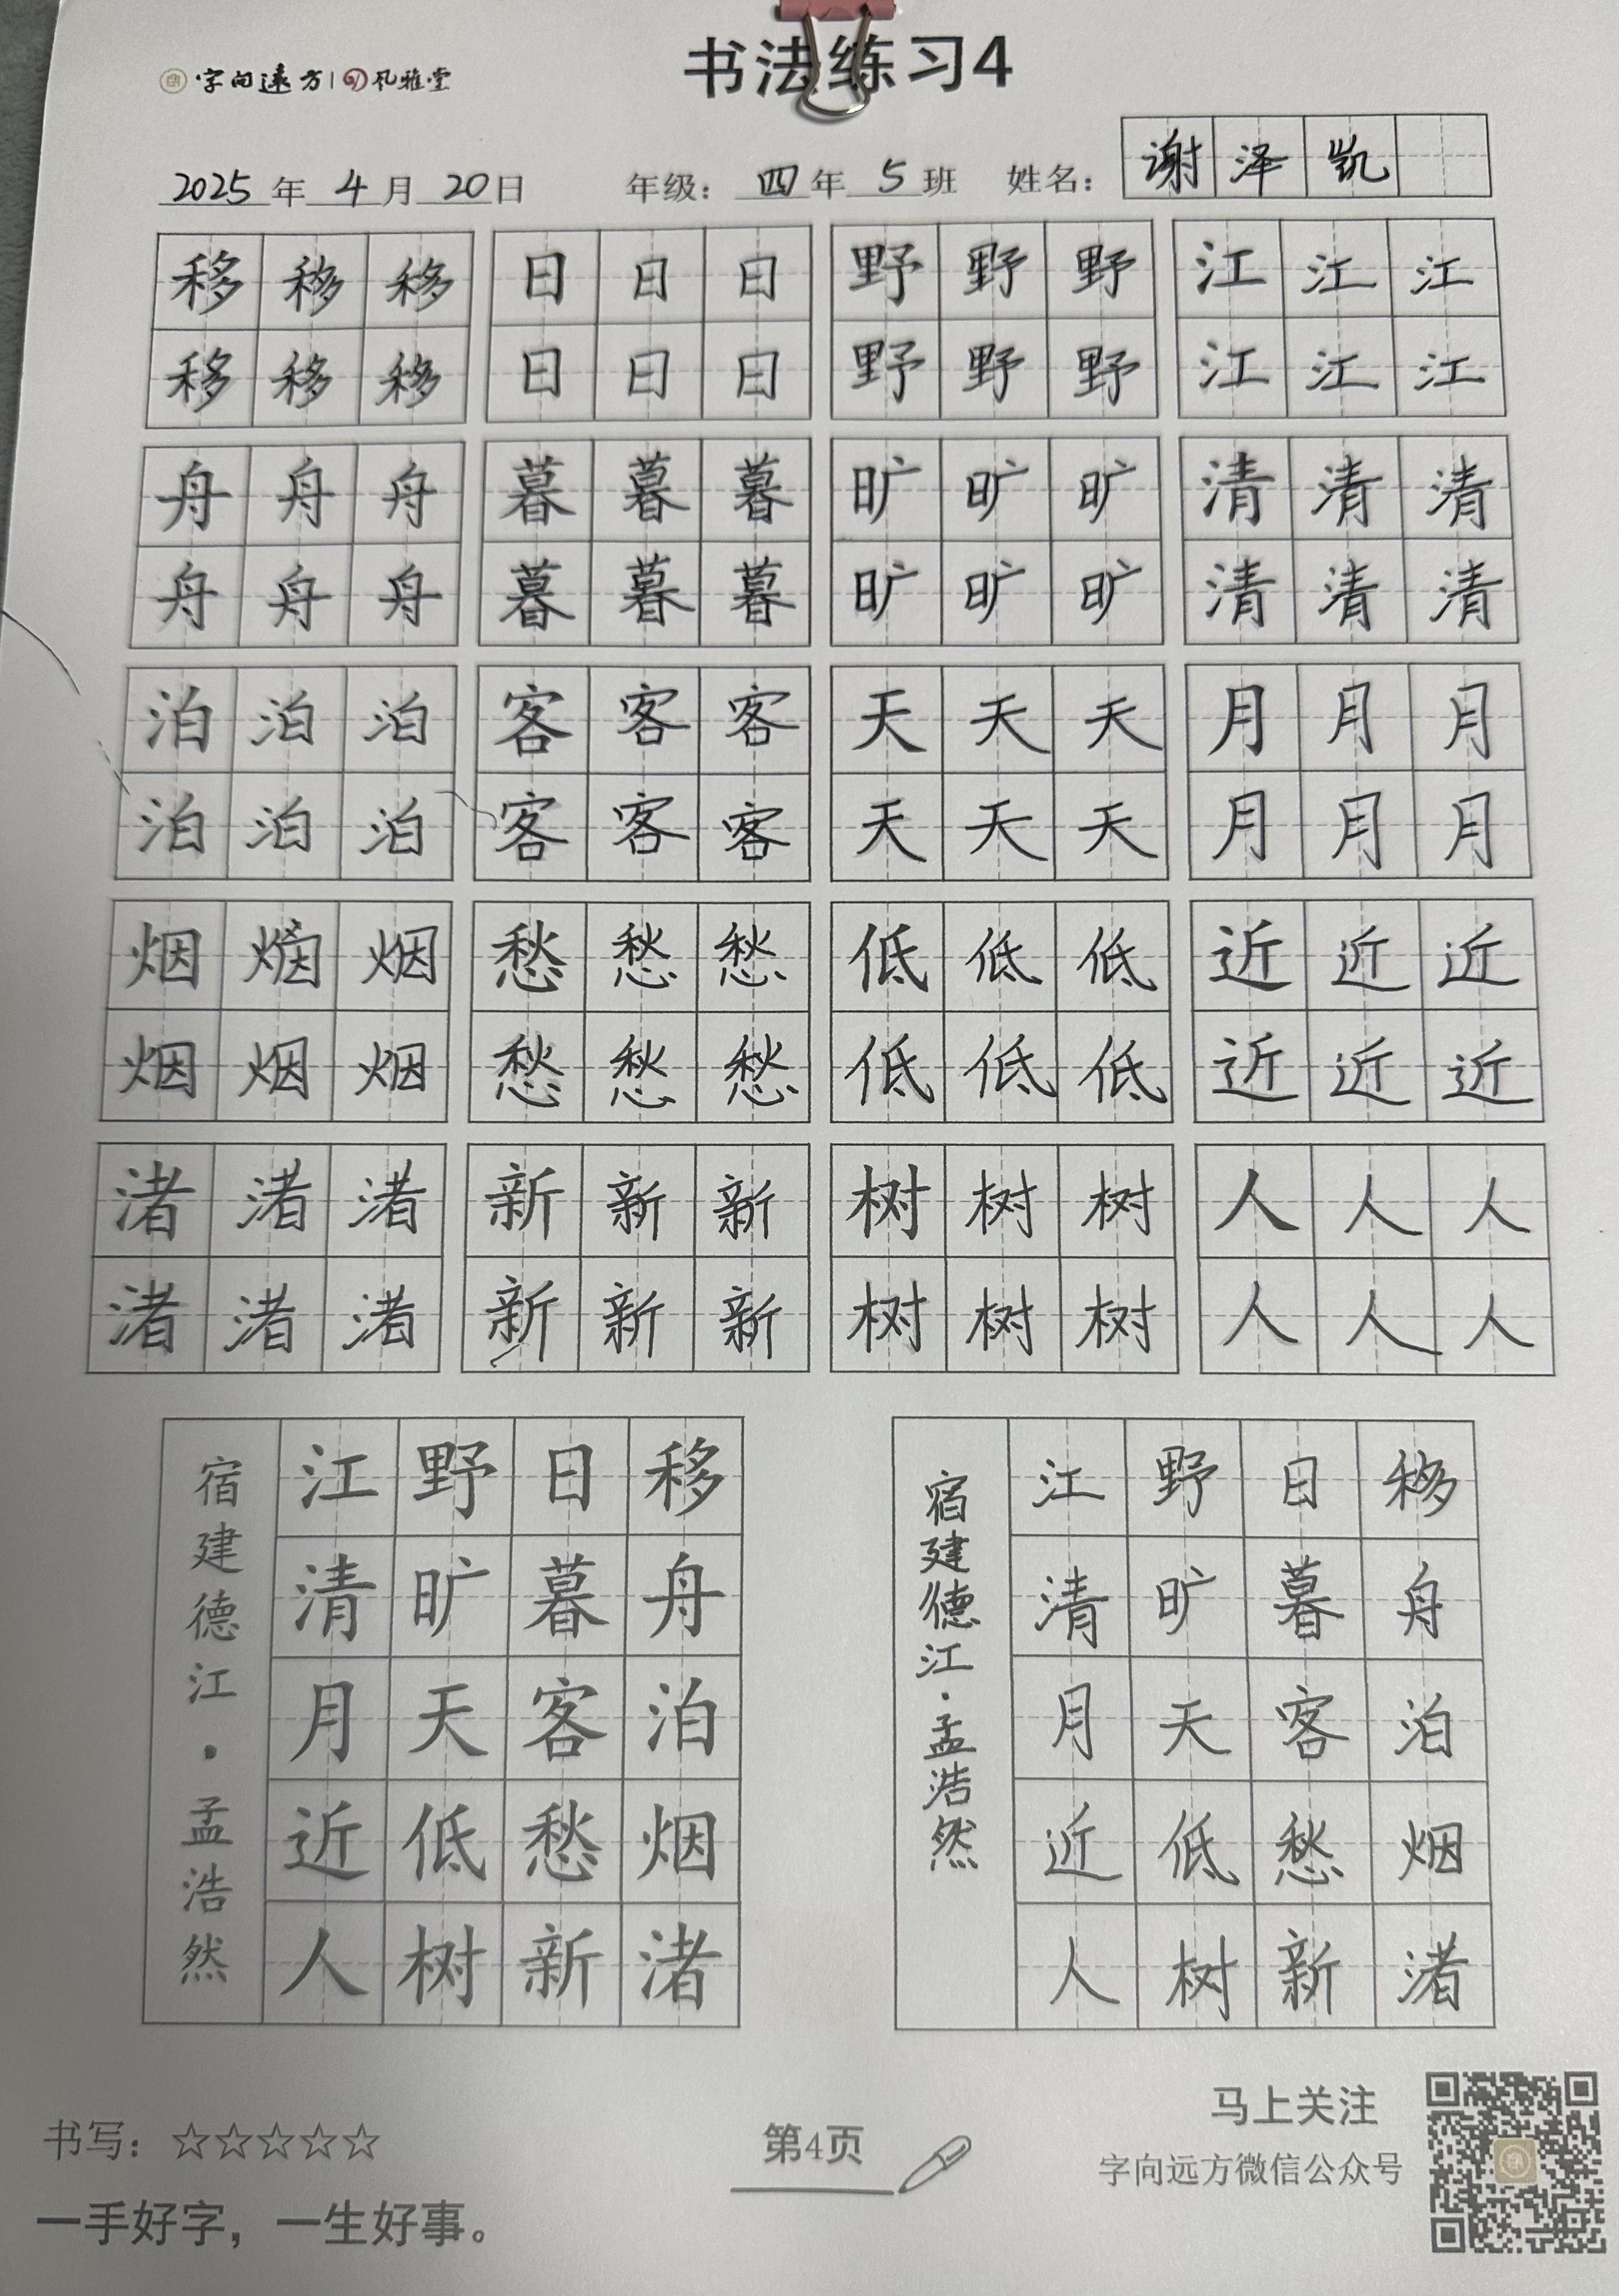 字向远方 | 风雅堂
书法练习4
2025年4月20日 年级：四年5班 姓名：谢泽凯
移移移 日日日 野野野 江江江
移移移 日日日 野野野 江江江
舟舟舟 暮暮暮 旷旷旷 清清清
舟舟舟 暮暮暮 旷旷旷 清清清
泊泊泊 客客客 天天天 月月月
泊泊泊 客客客 天天天 月月月
烟烟烟 愁愁愁 低低低 近近近
烟烟烟 愁愁愁 低低低 近近近
渚渚渚 新新新 树树树 人人人
渚渚渚 新新新 树树树 人人人
移舟泊烟渚
日暮客愁新
野旷天低树
江清月近人
宿建德江·孟浩然
移舟泊烟渚
日暮客愁新
野旷天低树
江清月近人
宿建德江·孟浩然
书写：☆☆☆☆☆
一手好字，一生好事。
第4页
马上关注
字向远方微信公众号